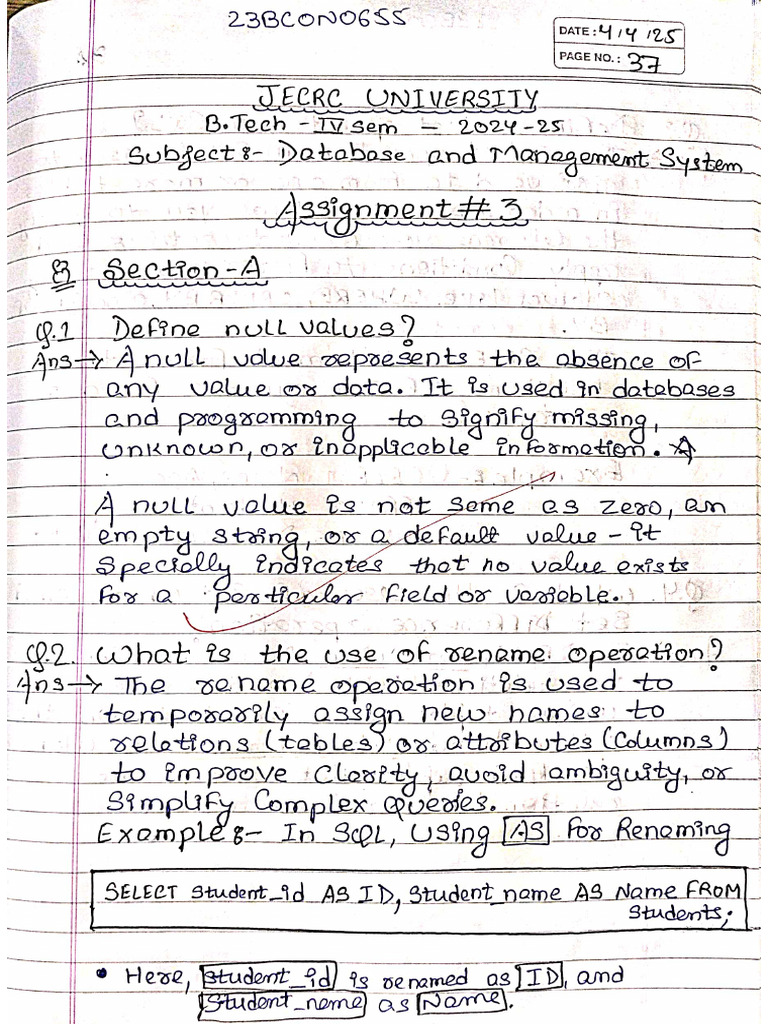 23BCON0655
DATE: 4/4/25
PAGE NO.: 37
JECRC UNIVERSITY
B.Tech - IV Sem - 2024-25
Subject :- Database and Management System
Assignment # 3
Section-A
Q.1 Define null values?
Ans → A null value represents the absence of
any value or data. It is used in databases
and programming to signify missing,
unknown, or inapplicable information.
A null value is not same as zero, an
empty string, or a default value - it
Specially indicates that no value exists
for a particular field or variable.
Q.2. What is the use of rename operation?
Ans → The rename operation is used to
temporarily assign new names to
relations (tables) or attributes (Columns)
to improve Clarity, avoid ambiguity, or
Simplify Complex Queries.
Example :- In SQL, Using AS for Renaming
SELECT Student_id AS ID, Student_name AS Name FROM
Students;
• Here, Student_id is renamed as ID, and
Student_name as Name.